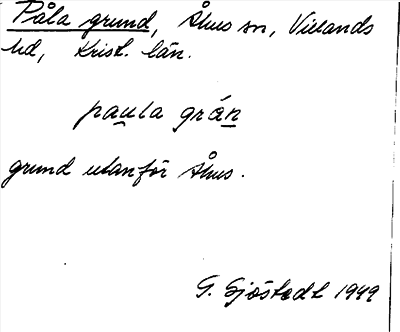 Påla grund, Åhus sn, Villands
hd, Krist. län.
paula grán
grund utanför Åhus.
G. Sjöstedt 1949